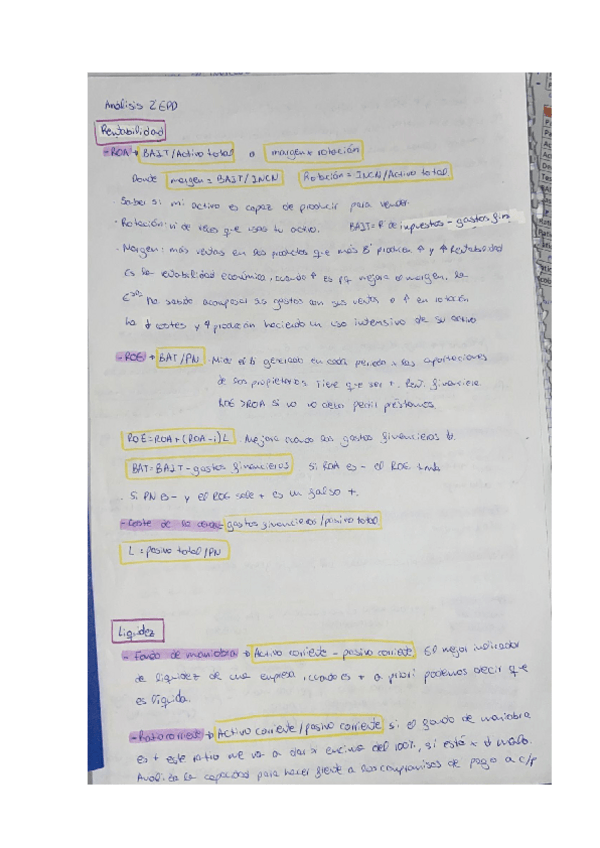 Análisis 2 EPD
Rentabilidad
- ROA → BAIT/Activo total o margen x rotación
Donde margen = BAIT/INCN Rotación = INCN/Activo total
· Saber si mi activo es capaz de producir para vender.
· Rotación: nº de veces que usas tu activo. BAIT = Bº de impuestos - gastos fin
· Margen: más ventas en los productos que más Bº producen ↑ y ↑ Rentabilidad
Es la rentabilidad económica, cuando ↑ es pq mejora el margen, la
Eª ha sabido acompasar sus gastos con sus ventas o ↑ en rotación
ha ↓ costes y ↑ producen haciendo un uso intensivo de su activo
- ROE → BAT/PN. Mide el Bº generado en cada periodo x las aportaciones
de sus propietarios. Tiene que ser +. Rent. financiera
ROE > ROA si no no debo pedir préstamos
ROE = ROA + (ROA - i) L. Mejora cuando los gastos financieros ↓.
BAT = BAIT - gastos financieros Si ROA es - el ROE tmb
· Si PN es - y el ROE sale + es un falso +.
- Coste de la deuda → gastos financieros/pasivo total
L = pasivo total/PN
Liquidez
- Fondo de maniobra → Activo corriente - pasivo corriente El mejor indicador
de liquidez de una empresa, cuando es + a priori podemos decir que
es líquida.
- Ratio corriente → Activo corriente/pasivo corriente si el fondo de maniobra
es + este ratio me va a dar x encima del 100%, si está x ↓ malo.
Analiza la capacidad para hacer frente a los compromisos de pago a c/p